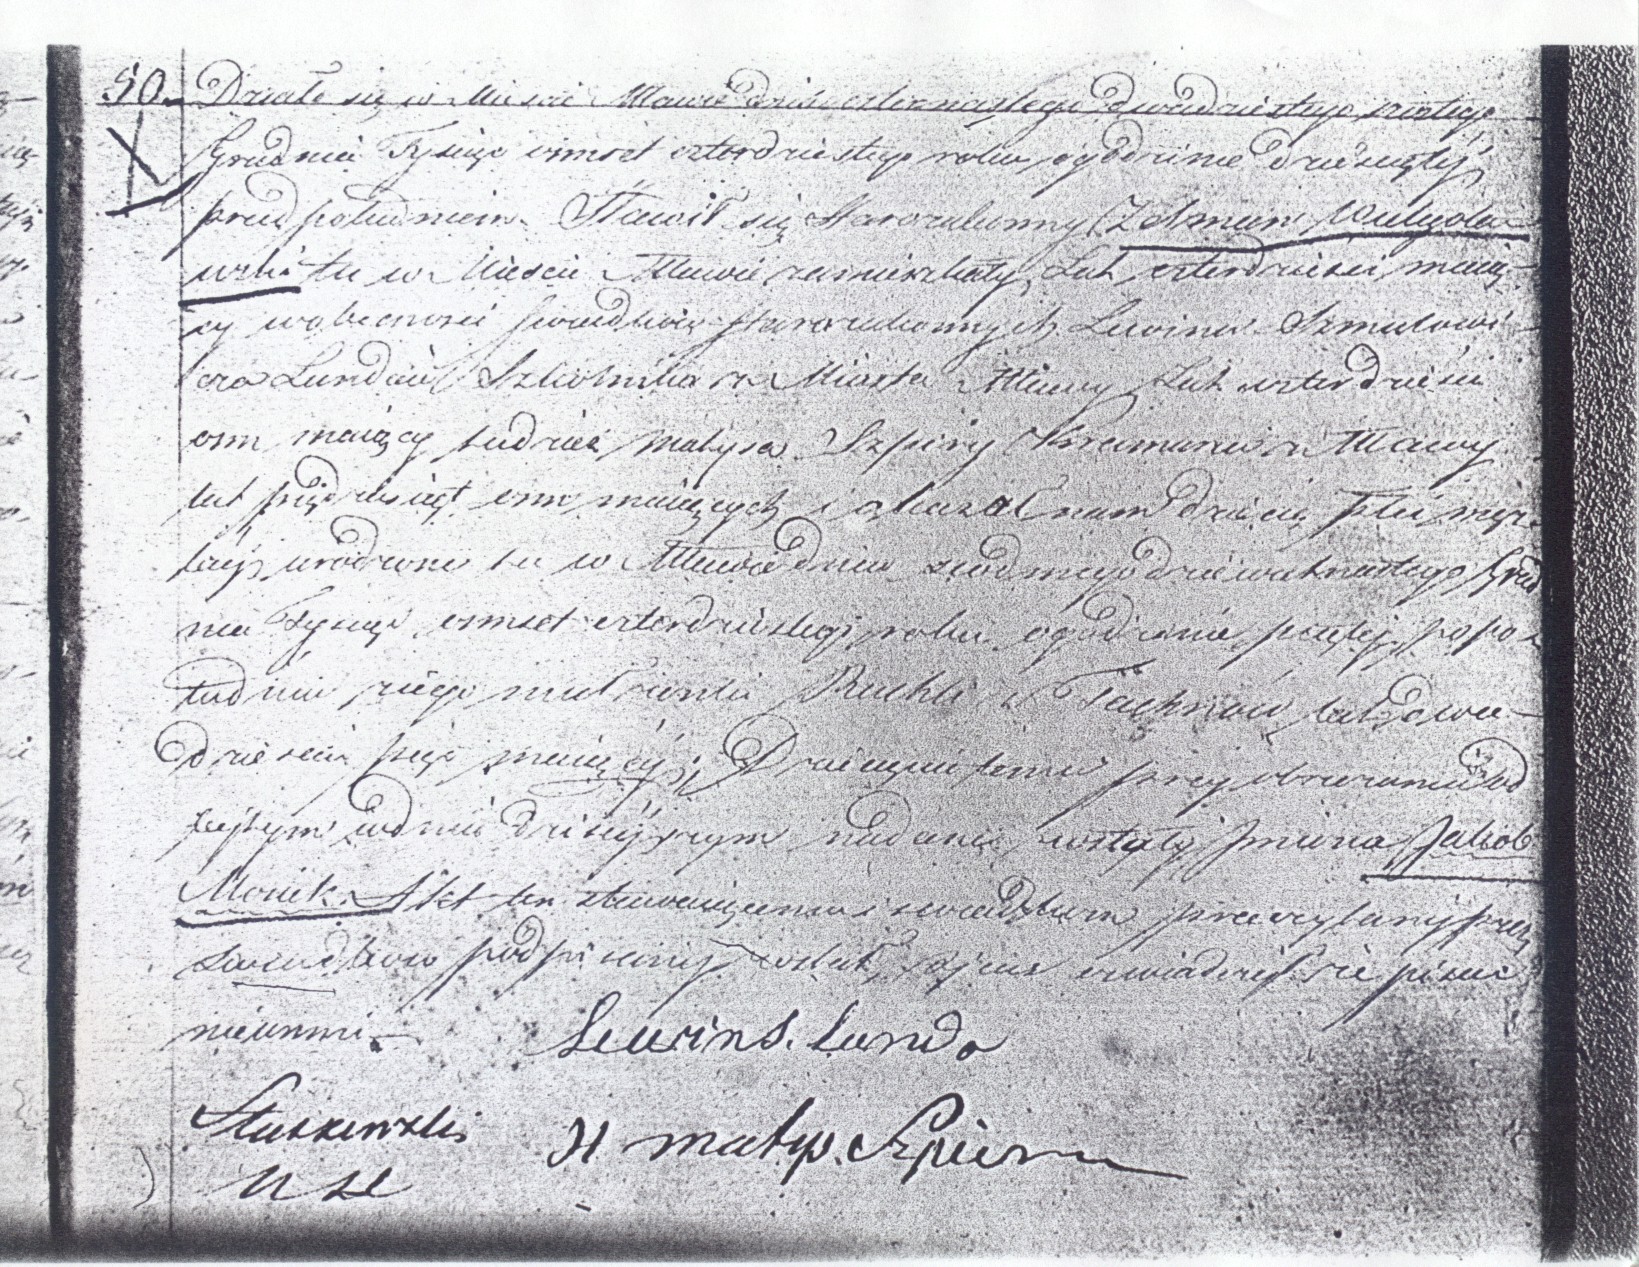 50. Działo się w Mieście Mławie dnia czternastego dwudziestego szóstego
Grudnia Tysiąc osmset czterdziestego roku, o godzinie dziesiątej
przed południem. Stawił się Starozakonny Zelman
tu w Mieście Mławie zamieszkały, Lat czterdzieści maią-
cy w obecności świadków Starozakonnych Lewina Szmulowi-
cza Lunday Szkolnika z Miasta Mławy Lat czterdzieści
osm maiący tudzież Matysa Szpiry Kramarza z Mławy
lat pięćdziesiąt osm maiących i okazał nam dziecię Płci męz-
kiej urodzone tu w Mławie dnia siódmego dziewiętnastego Grud
nia Tysiąc osmset czterdziestego roku o godzinie piątej popo-
łudniu z iego małżonki Ruchli z lat dwa-
dzieścia pięć maiącej; Dziecięciu temu przy obrzezaniu od
bytym w dniu dzisiejszym nadane zostały Imiona Jakob
Moiek. Akt ten stawaiącemu i świadkom przeczytany przez
świadków podpisany został, oyciec oświadczył że pisać
nieumie.
Lewin S. Lando
H matys Szpiera